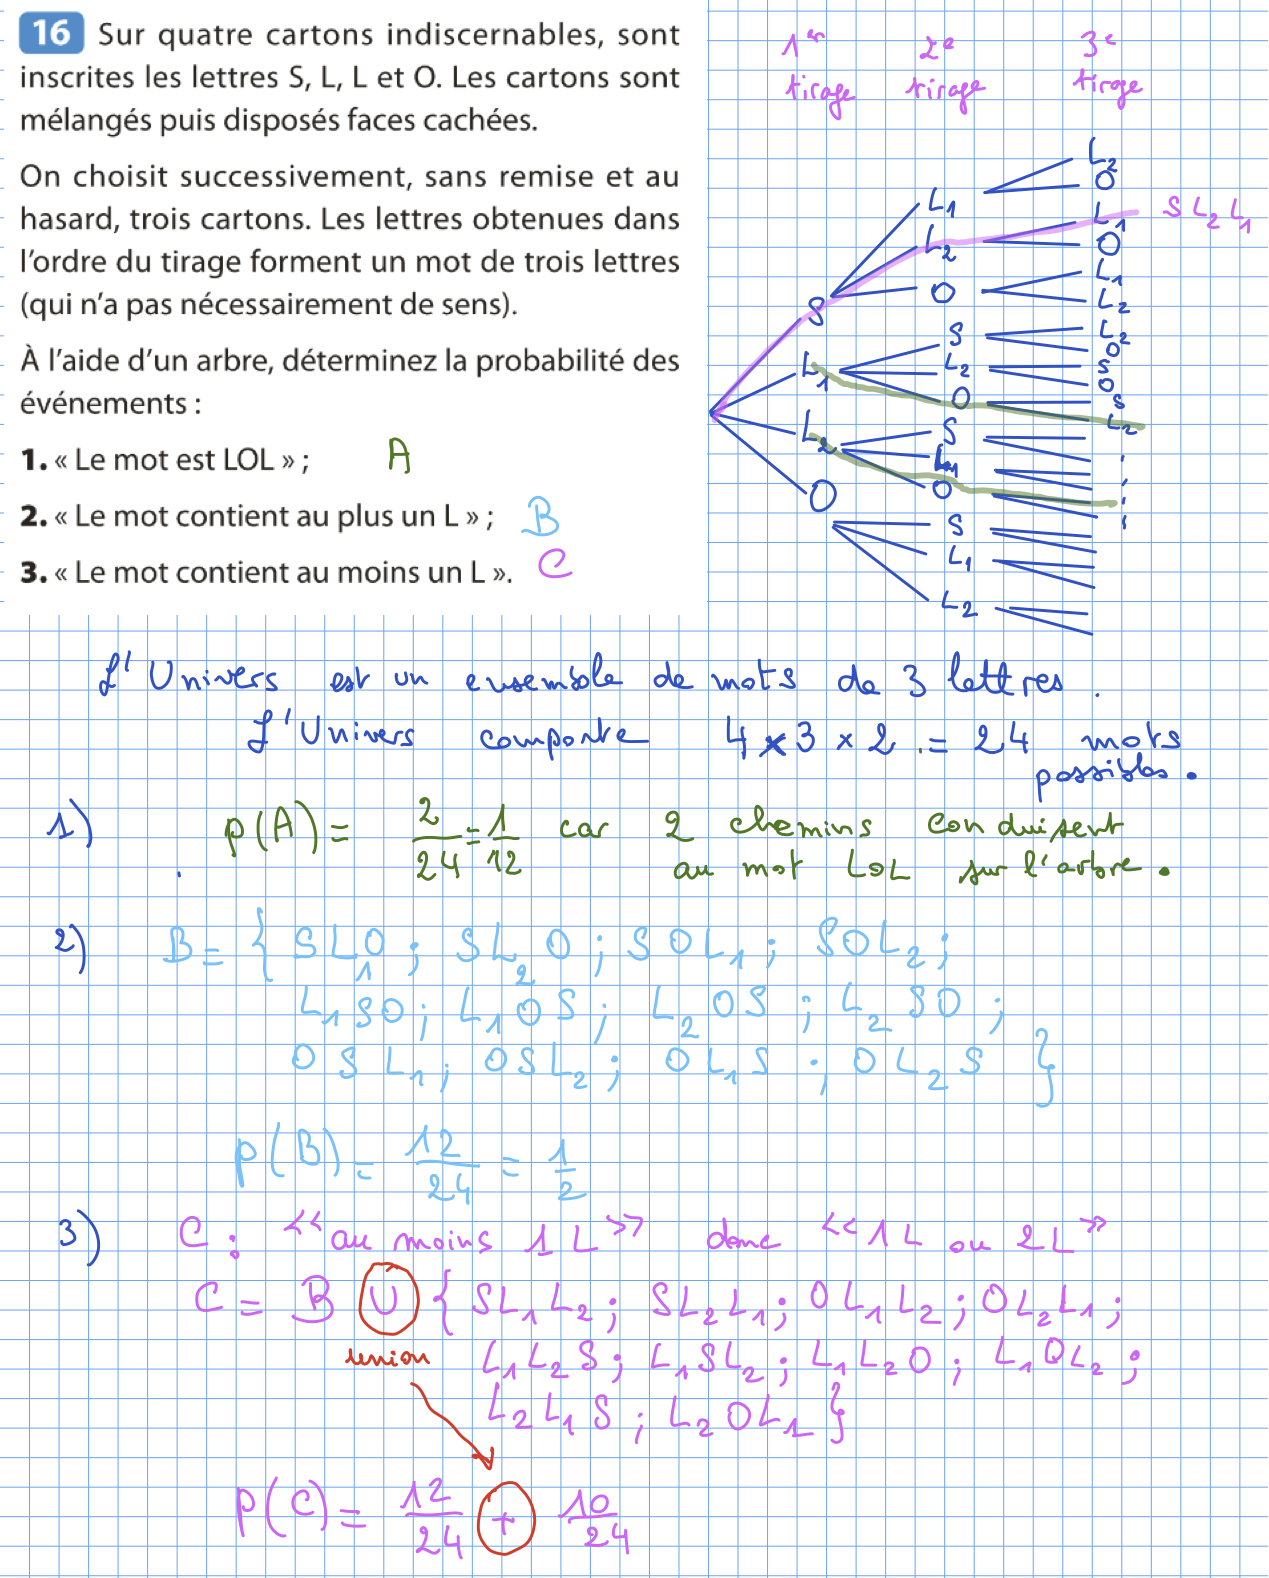 16 Sur quatre cartons indiscernables, sont
inscrites les lettres S, L, L et O. Les cartons sont
mélangés puis disposés faces cachées.
On choisit successivement, sans remise et au
hasard, trois cartons. Les lettres obtenues dans
l'ordre du tirage forment un mot de trois lettres
(qui n'a pas nécessairement de sens).
À l'aide d'un arbre, déterminez la probabilité des
événements :
1. « Le mot est LOL » ; A
2. « Le mot contient au plus un L » ; B
3. « Le mot contient au moins un L ». C
1er tirage
2e tirage
3e tirage
S
L₁
L₂
O
L₁
L₂
O
S
L₂
O
S
L₁
O
S
L₁
L₂
L₂
O
L₁
O
L₁
L₂
L₂
O
S
O
S
L₂
S L₂ L₁
L'Univers est un ensemble de mots de 3 lettres.
L'Univers comporte 4 × 3 × 2 = 24 mots
possibles.
1) p(A) = 2/24 = 1/12 car 2 chemins conduisent
au mot LOL sur l'arbre.
2) B = { SL₁O ; SL₂O ; SOL₁ ; SOL₂ ;
L₁SO ; L₁OS ; L₂OS ; L₂SO ;
OSL₁ ; OSL₂ ; OL₁S ; OL₂S }
p(B) = 12/24 = 1/2
3) C : << au moins 1 L >> donc << 1 L ou 2 L >>
C = B ∪ { SL₁L₂ ; SL₂L₁ ; OL₁L₂ ; OL₂L₁ ;
union L₁L₂S ; L₁SL₂ ; L₁L₂O ; L₁OL₂ ;
L₂L₁S ; L₂OL₁ }
p(C) = 12/24 + 10/24